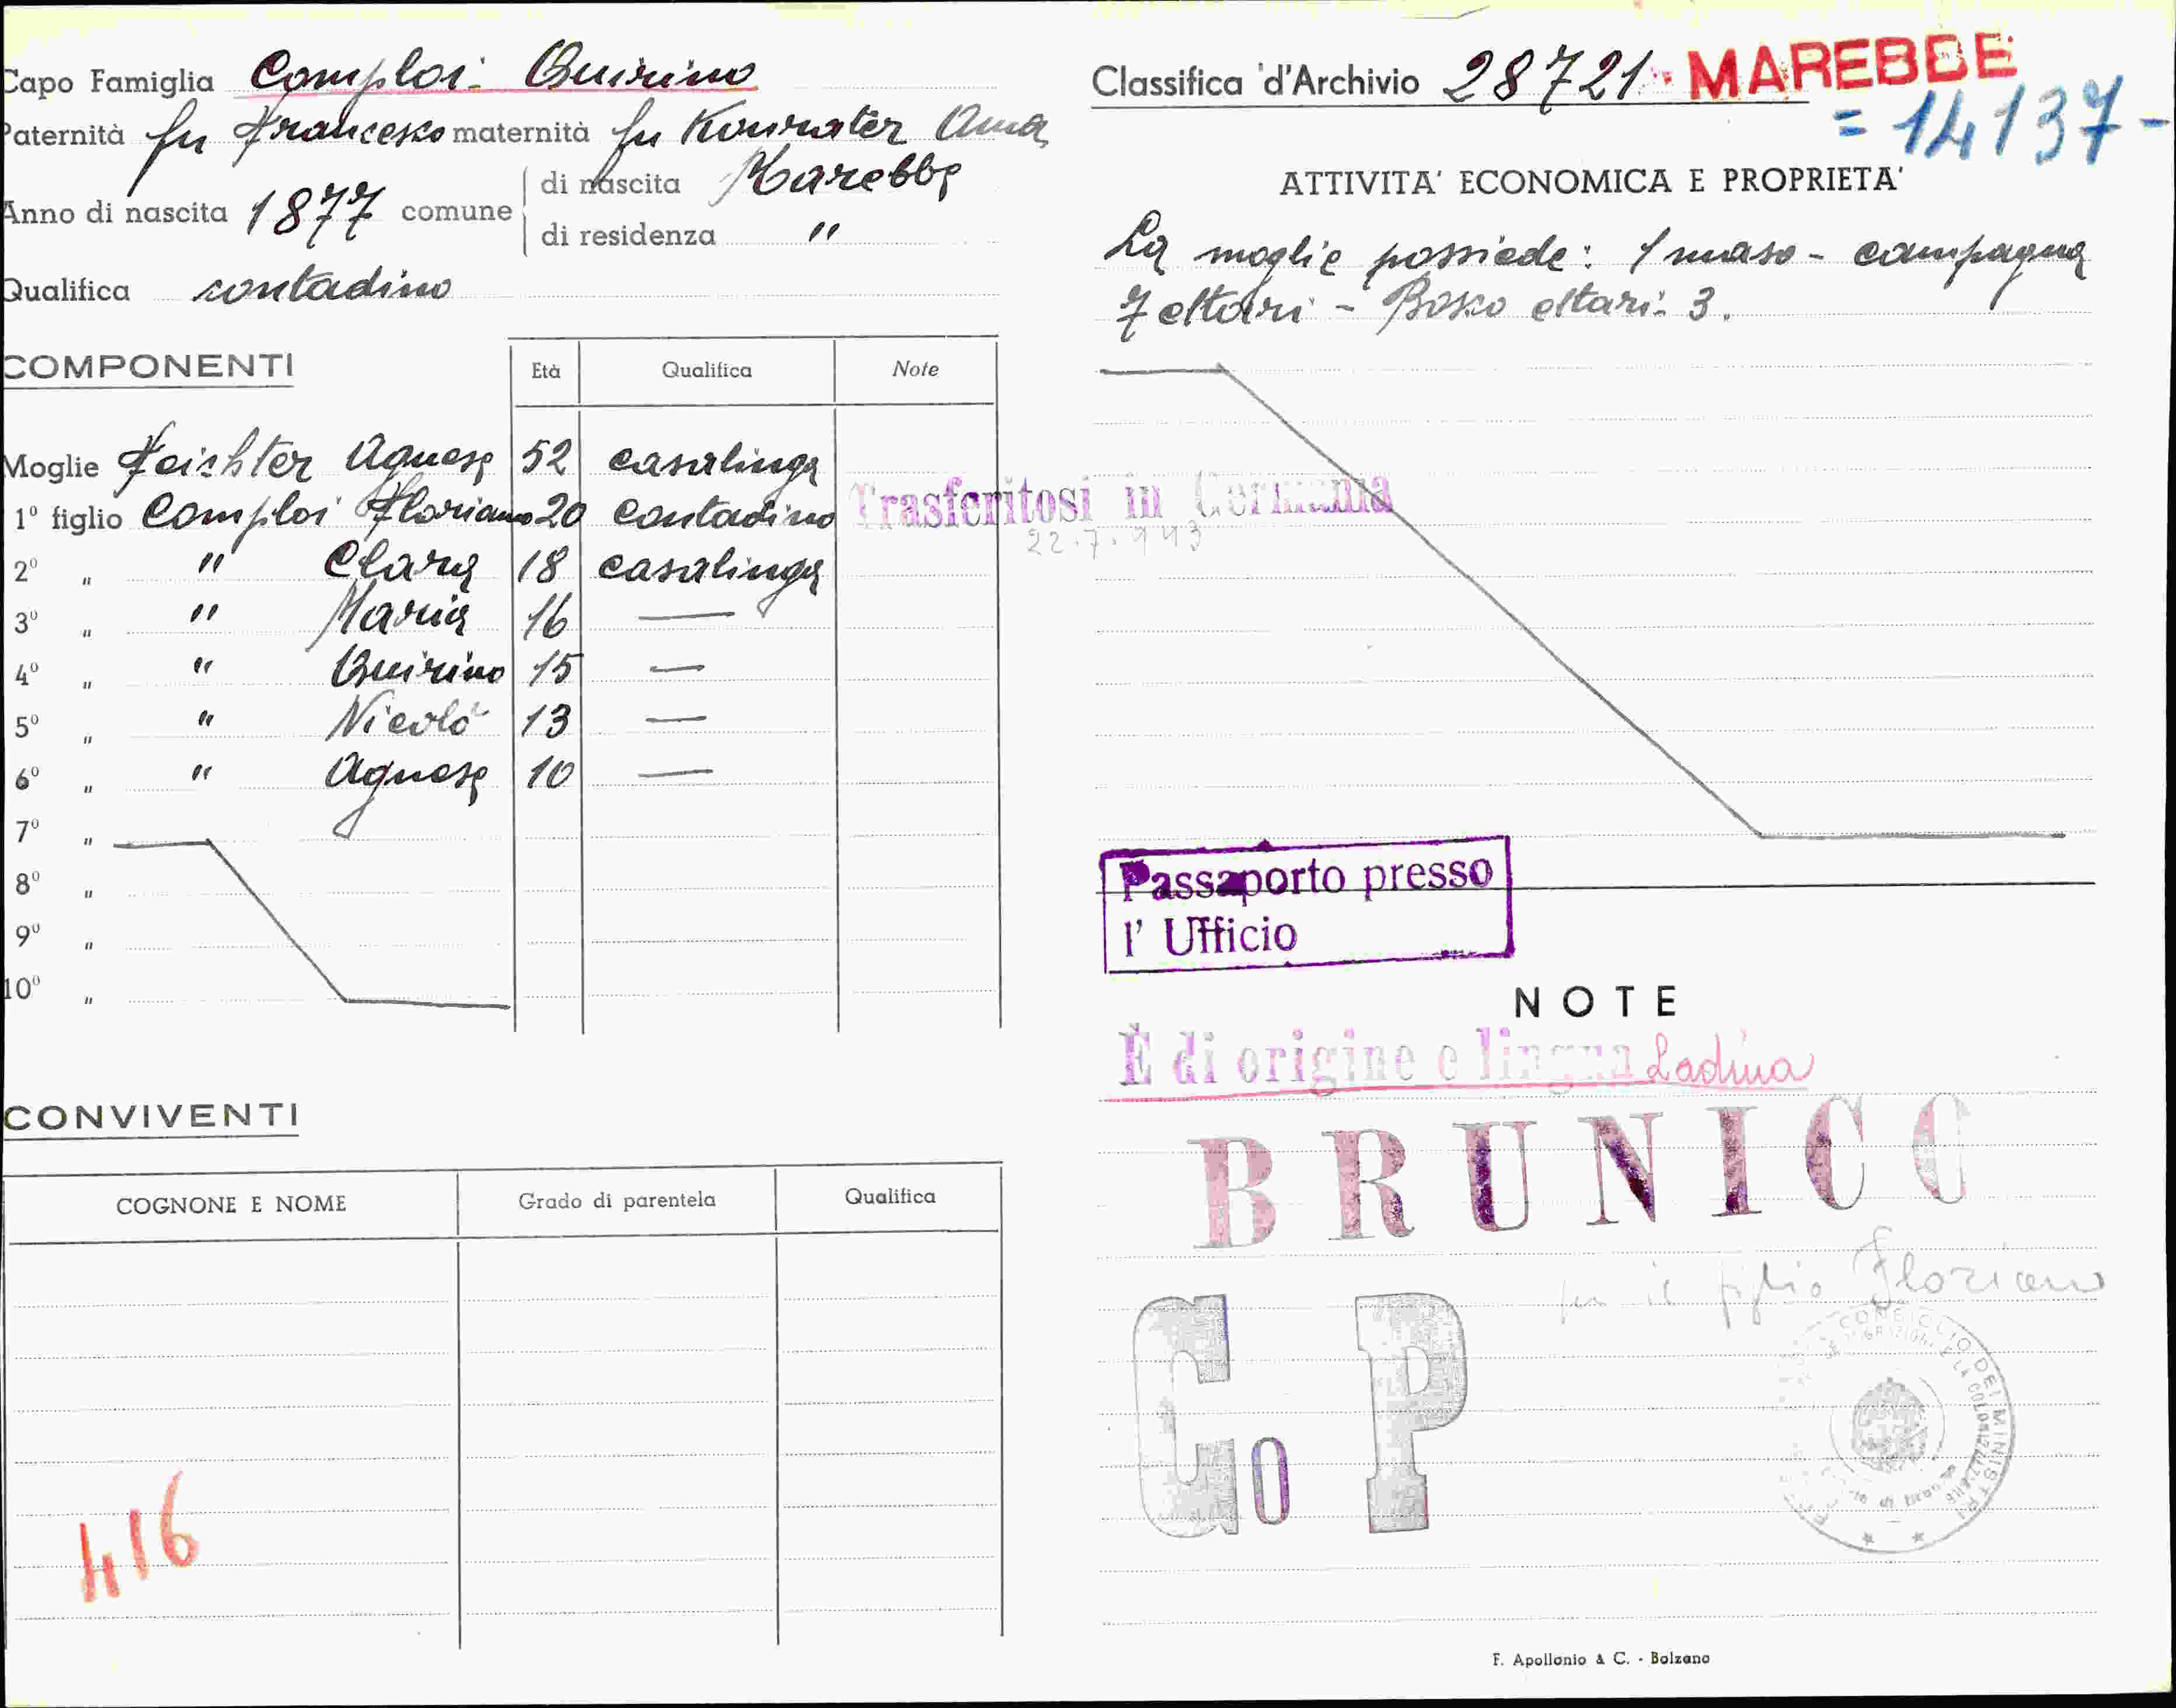 Capo Famiglia Comploi Quirino
Paternità fu Francesco maternità fu Anna
Anno di nascita 1877 comune di nascita Marebbe
di residenza "
Qualifica contadino
COMPONENTI Età Qualifica Note
Moglie Feichter Agnese 52 casalinga
1º figlio Comploi Floriano 20 contadino Trasferitosi in Germania
22.7.943
2º " " Clara 18 casalinga
3º " " Maria 16 —
4º " " Quirino 15 —
5º " " Nicolò 13 —
6º " " Agnese 10 —
7º "
8º "
9º "
10º "
CONVIVENTI
COGNONE E NOME Grado di parentela Qualifica
416
Classifica d'Archivio 28721 MAREBBE
= 14137 -
ATTIVITA' ECONOMICA E PROPRIETA'
La moglie possiede: 1 maso - campagna
7 ettari - Bosco ettari: 3.
Passaporto presso
l' Ufficio
NOTE
È di origine e lingua Ladina
BRUNICO
per il figlio Floriano
Co P
CONSIGLIO DEI MINISTRI
F. Apollonio & C. - Bolzano